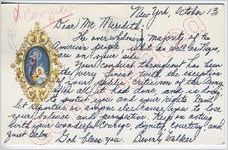 New York, October 13
Dear Mr. Meredith:
The overwhelming majority of the
American people, white as well as Negro,
are on your side.
Your conduct throughout has been
the very finest with the exception
of your criticism of the Army
after all it had done and is doing
to protect you and your rights. Don't
let reporters or anyone cause you to lose
your balance and perspective. Keep on acting
with your wonderful courage, dignity, courtesy, and
quiet calm.
God bless you. Beverly Walker